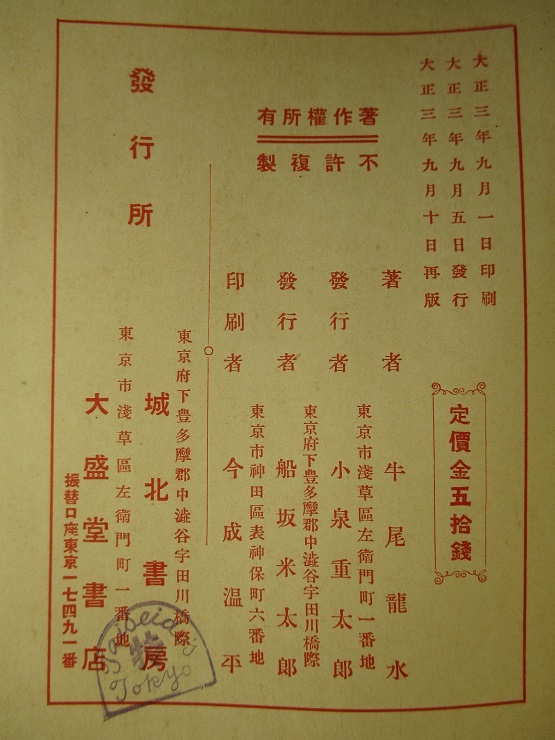 大正三年九月一日印刷
大正三年九月五日發行
大正三年九月十日再版
定價金五拾錢
著作權所有
不許複製
著者 牛尾龍水
東京市淺草區左衛門町一番地
發行者 小泉重太郎
東京府下豊多摩郡中澁谷宇田川橋際
發行者 船坂米太郎
東京市神田區表神保町六番地
印刷者 今成温平
發行所
東京府下豊多摩郡中澁谷宇田川橋際
城北書房
東京市淺草區左衛門町一番地
大盛堂書店
振替口座東京一七四九一番
Taiseido
特
Tokyo